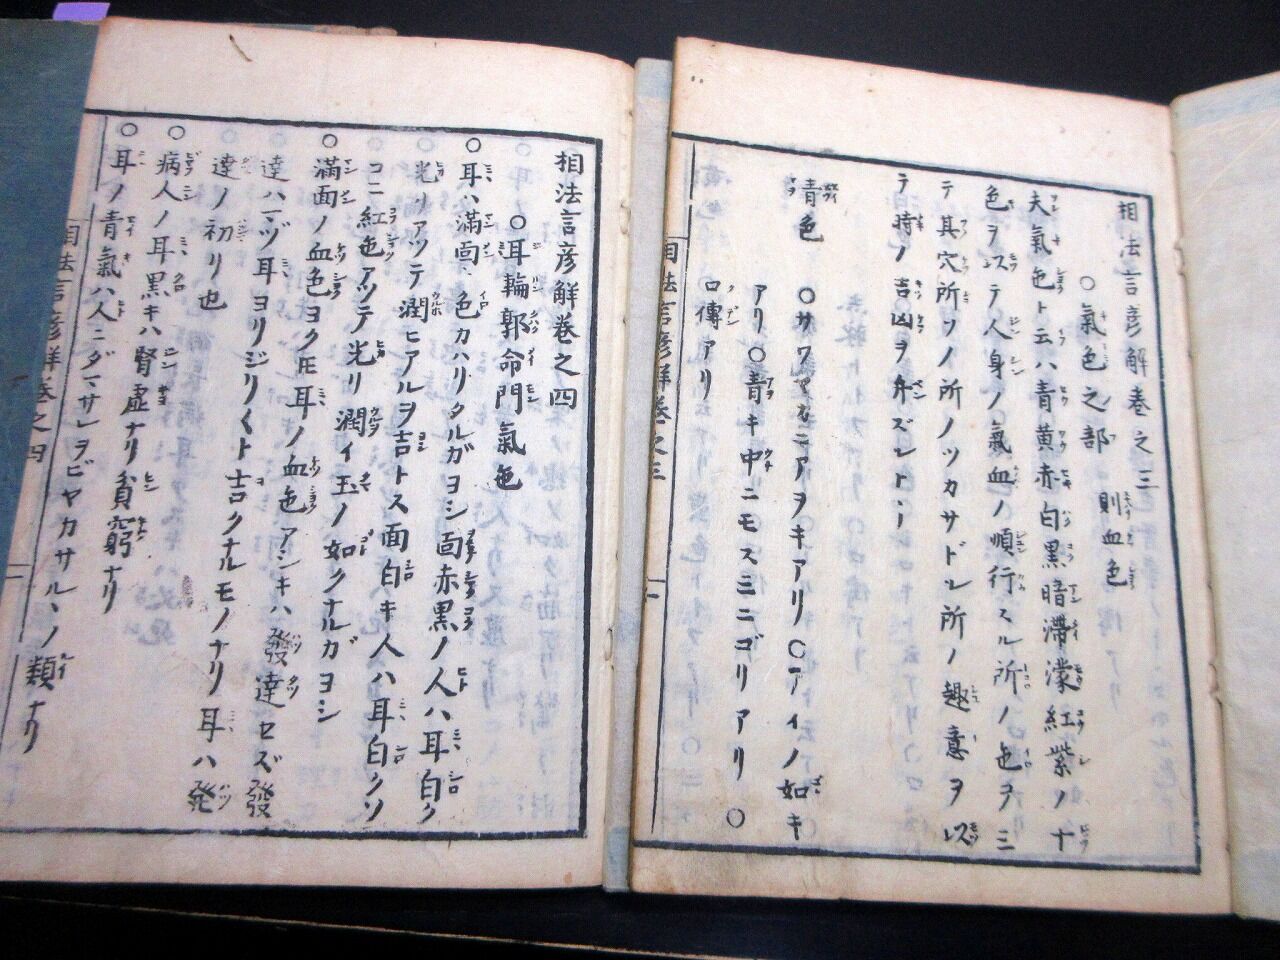 相法言彦解巻之三
○氣色之部 則血色
夫氣色ト云ハ青黄赤白黒暗滞濛紅紫ノ十
色ヲ以テ人身ノ氣血ノ順行スル所ノ色ヲ三
テ其穴所ソノ所ノツカサドル所ノ趣意ヲ以
テ時ノ吉凶ヲ弁ズ
青色 ○サワヤカニアヲキアリ○アイノ如キ
アリ○青キ中ニモスミニゴリアリ○
口傳アリ
相法言彦解巻之三
相法言彦解巻之四
○耳輪郭命門氣色
○耳ハ滿面ノ色カハリタルガヨシ面赤黒ノ人ハ耳白ク
光リアツテ潤ヒアルヲ吉トス面白キ人ハ耳白クソ
コニ紅色アツテ光リ潤イ玉ノ如クナルガヨシ
○滿面ノ血色ヨク圧耳ノ血色アシキハ發達セズ發
達ハマヅ耳ヨリジリ〱ト吉クナルモノナリ耳ハ発
達ノ初リ也
○病人ノ耳黒キハ腎虚ナリ貧窮ナリ
○耳ノ青氣ハ人ニダマサレヲビヤカサルヽノ類ナリ
相法言彦解巻之四